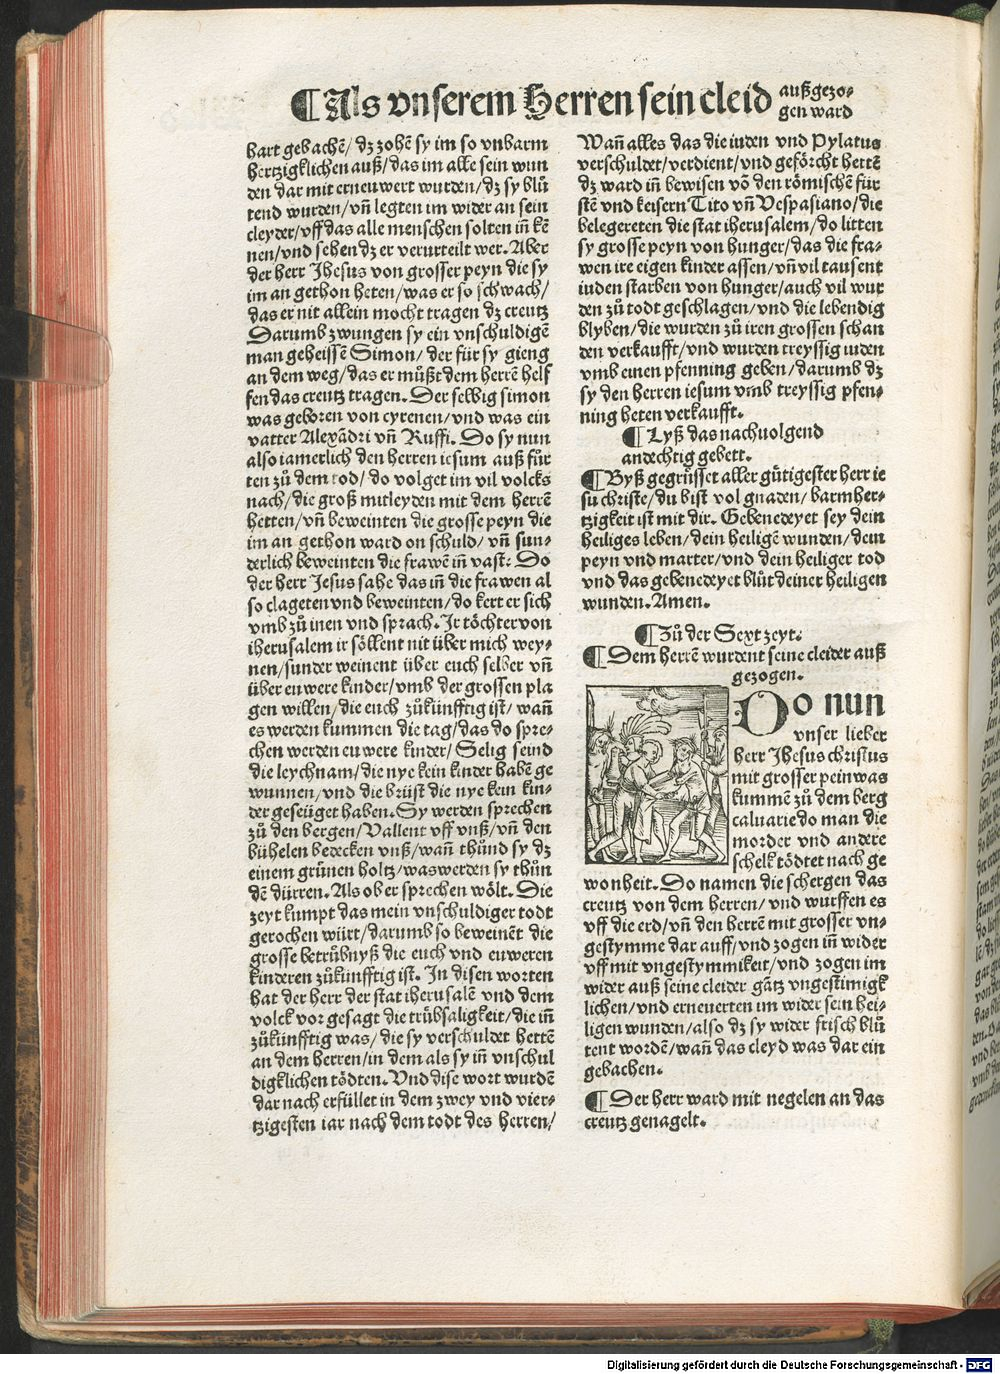 ¶ Als vnserem Herren sein cleid außgezo-
gen ward
hart gebachē/ dz zohē sy im so vnbarm
hertzigklichen auß/das im alle sein wun
den dar mit erneuwert wurden/dz sy blů
tend wurden/vñ legten im wider an sein
cleyder/vff das alle menschen solten iñ kē
nen/vnd sehend dz er verurteilt wer. Aber
der herr Jhesus von grosser peyn die sy
im an gethon heten/was er so schwach/
das er nit allein mocht tragen dz creutz
Darumb zwungen sy ein vnschuldigē
man geheissē Simon/ der für sy gieng
an dem weg/das er müßt dem herrē helf
fen das creutz tragen. Der selbig simon
was geboren von cyrenen/vnd was ein
vatter Alexādri vñ Ruffi. Do sy nun
also iamerlich den herren iesum auß für
ten zů dem tod/ do volget im vil volcks
nach/die groß mitleyden mit dem herrē
hetten/vñ beweinten die grosse peyn die
im an gethon ward on schuld/ vñ sun-
derlich beweinten die frawē iñ vast: Do
der herr Jesus sahe das iñ die frawen al
so clageten vnd beweinten/do kert er sich
vmb zů inen vnd sprach. Ir töchter von
iherusalem ir söllent nit über mich wey-
nen/sunder weinent über euch selber vñ
über euwere kinder/vmb der grossen pla
gen willen/die euch zůkünfftig ist/ wañ
es werden kummen die tag/das do spre-
chen werden euwere kinder/ Selig seind
die leychnam/die nye kein kinder habē ge
wunnen/vnd die brüst die nye kein kin-
der geseüget haben. Sy werden sprechen
zů den bergen/Vallent vff vnß/vñ den
bühelen bedecken vnß/wañ thůnd sy dz
einem grünen holtz/was werden sy thůn
dē dürren. Als ob er sprechen wölt. Die
zeyt kumpt das mein vnschuldiger todt
gerochen würt/darumb so beweinēt die
grosse betrůbnyß die euch vnd euweren
kinderen zůkünfftig ist. In disen worten
hat der herr der stat iherusalē vnd dem
volck vor gesagt die trůbsaligkeit/die iñ
zůkünfftig was/die sy verschuldet hettē
an dem herren/in dem als sy iñ vnschul
digklichen tödten. Vnd dise wort wurdē
dar nach erfüllet in dem zwey vnd vier-
tzigesten iar nach dem todt des herren/
Wañ alles das die iuden vnd Pylatus
verschuldet/verdient/vnd geförcht hettē
dz ward iñ bewisen vō den römischē für
stē vnd keisern Tito vñ Vespasiano/die
belegereten die stat iherusalem/do litten
sy grosse peyn von hunger/das die fra-
wen ire eigen kinder assen/vñ vil tausent
iuden starben von hunger/auch vil wur
den zů todt geschlagen/vnd die lebendig
blyben/die wurden zů iren grossen schan
den verkaufft/vnd wurden treyssig iuden
vmb einen pfenning geben/darumb dz
sy den herren iesum vmb treyssig pfen-
ning heten verkaufft.
¶ Lyß das nachuolgend
andechtig gebett.
¶ Byß gegrüsset aller gütigester herr ie
su christe/du bist vol gnaden/ barmher-
tzigkeit ist mit dir. Gebenedeyet sey dein
heiliges leben/dein heiligē wunden/dein
peyn vnd marter/vnd dein heiliger tod
vnd das gebenedeyet blůt deiner heiligen
wunden. Amen.
¶ Zů der Sext zeyt.
¶ Dem herrē wurdent seine cleider auß
gezogen.
DO nun
vnser lieber
herr Jhesus christus
mit grosser pein was
kummē zů dem berg
caluarie do man die
morder vnd andere
schelk tödtet nach ge
wonheit. Do namen die schergen das
creutz von dem herren/ vnd wurffen es
vff die erd/vñ den herrē mit grosser vn-
gestymme dar auff/vnd zogen iñ wider
vff mit vngestymmikeit/vnd zogen im
wider auß seine cleider gātz vngestimigk
lichen/vnd erneuerten im wider sein hei-
ligen wunden/also dz sy wider frisch blů
tent wordē/wañ das cleyd was dar ein
gebachen.
¶ Der herr ward mit negelen an das
creutz genagelt.
Digitalisierung gefördert durch die Deutsche Forschungsgemeinschaft - DFG